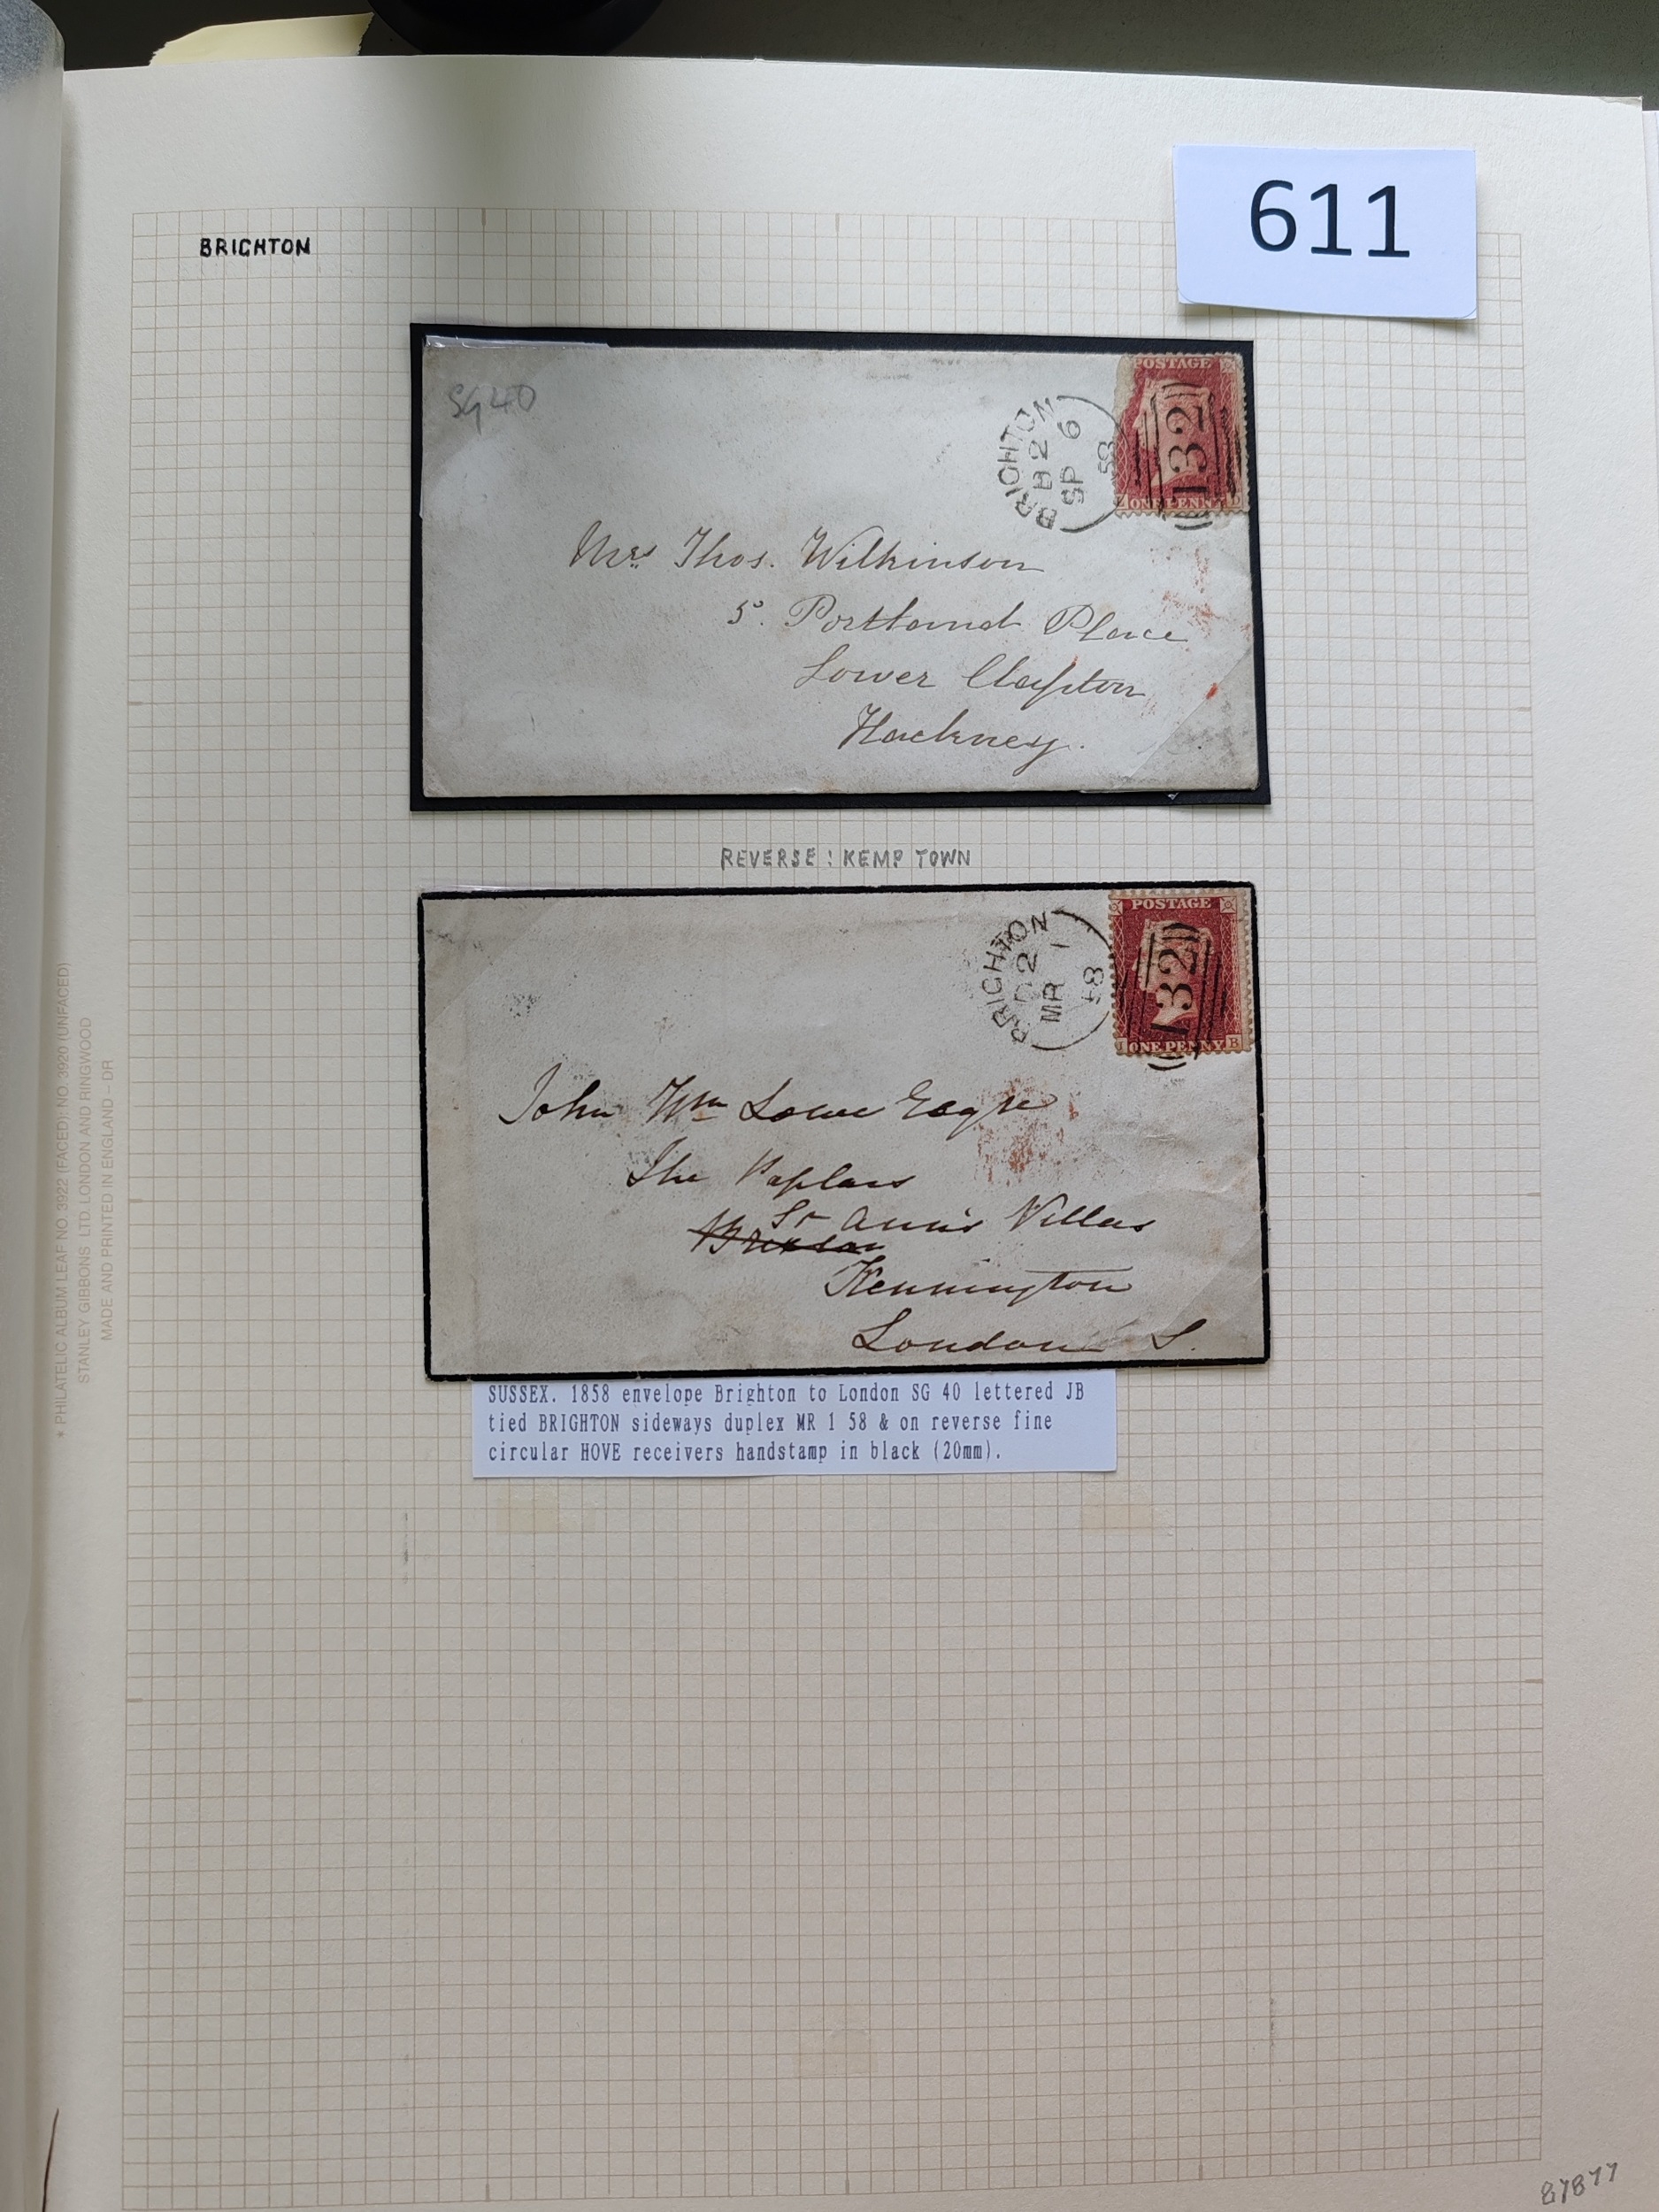 611
BRIGHTON
SG 40
BRIGHTON
B 2
SP 6
58
POSTAGE
132
ONE PENNY
Mrs Thos. Wilkinson
5. Portland Place
Lower Clapton
Hackney.
REVERSE: KEMP TOWN
BRIGHTON
D 2
MR 1
58
POSTAGE
132
ONE PENNY B
John Wm Lowe Esqre
The Poplars
St Ann's Villas
Brixton
Kennington
London S.
SUSSEX. 1858 envelope Brighton to London SG 40 lettered JB
tied BRIGHTON sideways duplex MR 1 58 & on reverse fine
circular HOVE receivers handstamp in black (20mm).
* PHILATELIC ALBUM LEAF NO. 3922 (FACED); NO. 3920 (UNFACED)
STANLEY GIBBONS LTD. LONDON AND RINGWOOD
MADE AND PRINTED IN ENGLAND – DR
87877